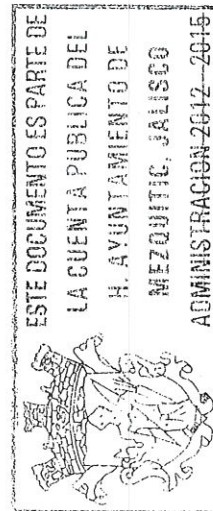 ESTE DOCUMENTO ES PARTE DE
LA CUENTA PUBLICA DEL
H. AYUNTAMIENTO DE
MEZQUITIC, JALISCO
ADMINISTRACION 2012-2015